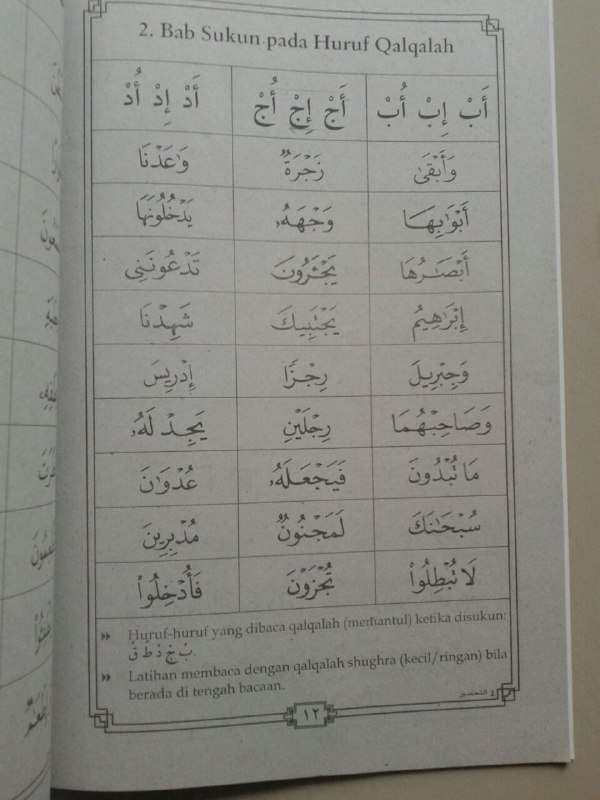 2. Bab Sukun pada Huruf Qalqalah
أَبْ إِبْ أُبْ أَجْ إِجْ أُجْ أَدْ إِدْ أُدْ
وَأَبْقَىٰ زَجْرَةٌ وَٰعَدْنَا
أَبْوَٰبِهَا وَجْهَهُۥ يَدْخُلُونَهَا
أَبْصَـٰرُهَا يَجْـَٔرُونَ تَدْعُونَنِى
إِبْرَٰهِيمُ يَجْتَبِيكَ شَهِدْنَا
وَجِبْرِيلَ رِجْزًا إِدْرِيسَ
وَصَاحِبْهُمَا رِجْلَيْنِ يَجِدْ لَهُۥ
مَا تُبْدُونَ فَيَجْعَلَهُۥ عُدْوَانَ
سُبْحَـٰنَكَ لَمَجْنُونٌ مُدْبِرِينَ
لَا تُبْطِلُوا۟ تُجْزَوْنَ فَأُدْخِلُوا۟
Huruf-huruf yang dibaca qalqalah (memantul) ketika disukun:
بْ جْ دْ طْ قْ
Latihan membaca dengan qalqalah shughra (kecil/ringan) bila
berada di tengah bacaan.
١٢